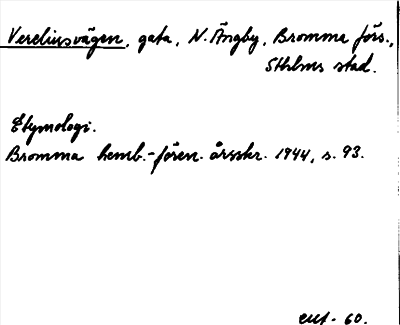 Vereliusvägen, gata, N. Ängby, Bromma förs.,
Sthlms stad.
Etymologi.
Bromma hemb.-fören. årsskr. 1944, s. 93.
60.